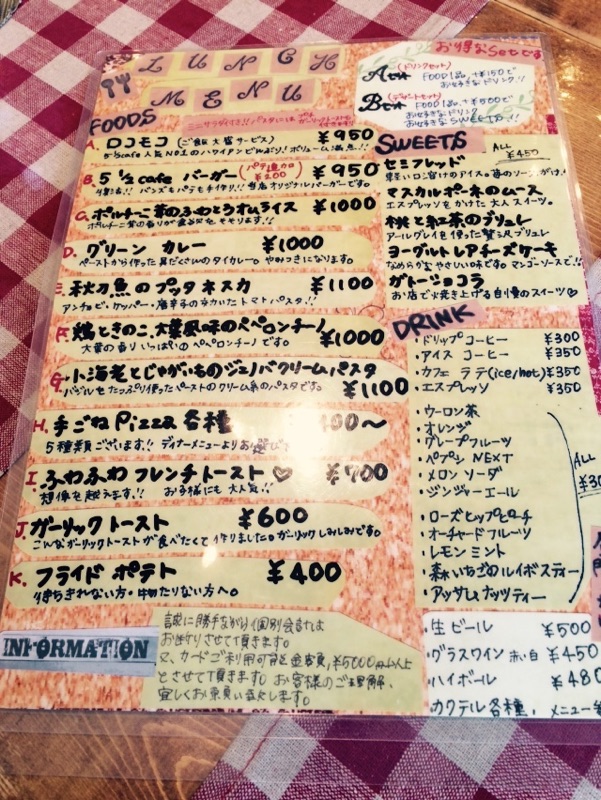 LUNCH
MENU
お得なSetです
A set (ドリンクセット)
FOOD1品+¥150で
お好きなドリンク!!
B set (デザートセット)
FOOD1品+¥500で
お好きなドリンク
お好きなSWEETS!!
FOODS
A. ロコモコ (ご飯大盛サービス) ¥950
5 1/2 cafe 人気NO.1のハワイアンどんぶり!ボリューム満点!!
B. 5 1/2 cafe バーガー (パテ追加 ¥200) ¥950
バンズもパテも手作り!! 当店オリジナルバーガーです。
C. ポルチーニ茸のふわとろオムライス ¥1000
D. グリーン カレー ¥1000
ペーストから作った具だくさんのタイカレー。やみつきになります。
E. 秋刀魚のプッタネスカ ¥1100
アンチョビ・ケッパー・唐辛子のきいたトマトパスタ!!
F. 鶏ときのこ、大葉風味のペペロンチーノ ¥1000
大葉の香りいっぱいのペペロンチーノです。
G. 小海老とじゃがいものジェノバクリームパスタ ¥1100
バジルをたっぷり使ったペーストのクリーム系のパスタです。
H. 手ごねPizza 各種 00~
5種類ございます!! ディナーメニューよりお選び
I. ふわふわ フレンチトースト♡ ¥700
想像を超えます!! お子様にも大人気!!
J. ガーリックトースト ¥600
こんなガーリックトーストが食べたくて作りました。ガーリックしみしみです。
K. フライド ポテト ¥400
待ちきれない方。中めたりない方へ。
INFORMATION
誠に勝手ながら個別会計は
お断りさせて頂きます。
又、カードご利用可能金額、¥5000以上
とさせて頂きます。お客様のご理解、
宜しくお願い致します。
SWEETS ALL ¥450
セミフレッド
軽い口溶けのアイス。苺のソースがけ!
マスカルポーネのムース
エスプレッソをかけた大人スイーツ。
桃と紅茶のブリュレ
アールグレイを使った贅沢ブリュレ
ヨーグルトレアチーズケーキ
なめらかでやさしい味です。マンゴーソースで!!
ガトーショコラ
お店で焼き上げる自慢のスイーツ♡
DRINK
・ドリップコーヒー ¥300
・アイス コーヒー ¥350
・カフェ ラテ(ice/hot) ¥350
・エスプレッソ ¥350
・ウーロン茶
・オレンジ
・グレープフルーツ
・ペプシ NEXT
・メロン ソーダ
・ジンジャーエール
ALL
・ローズヒップピーチ
・オーチャードフルーツ
・レモンミント
・森いちごのルイボスティー
・アッサムナッツティー
・生ビール ¥500
・グラスワイン 赤・白 ¥450
・ハイボール ¥480
・カクテル各種、メニュー